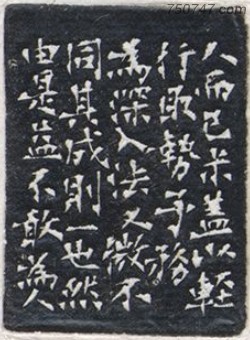 750747.com
人而已朱蓋以輕
行取勢予務
為深入法又微不
同其成則一也然
由是益不敢為人